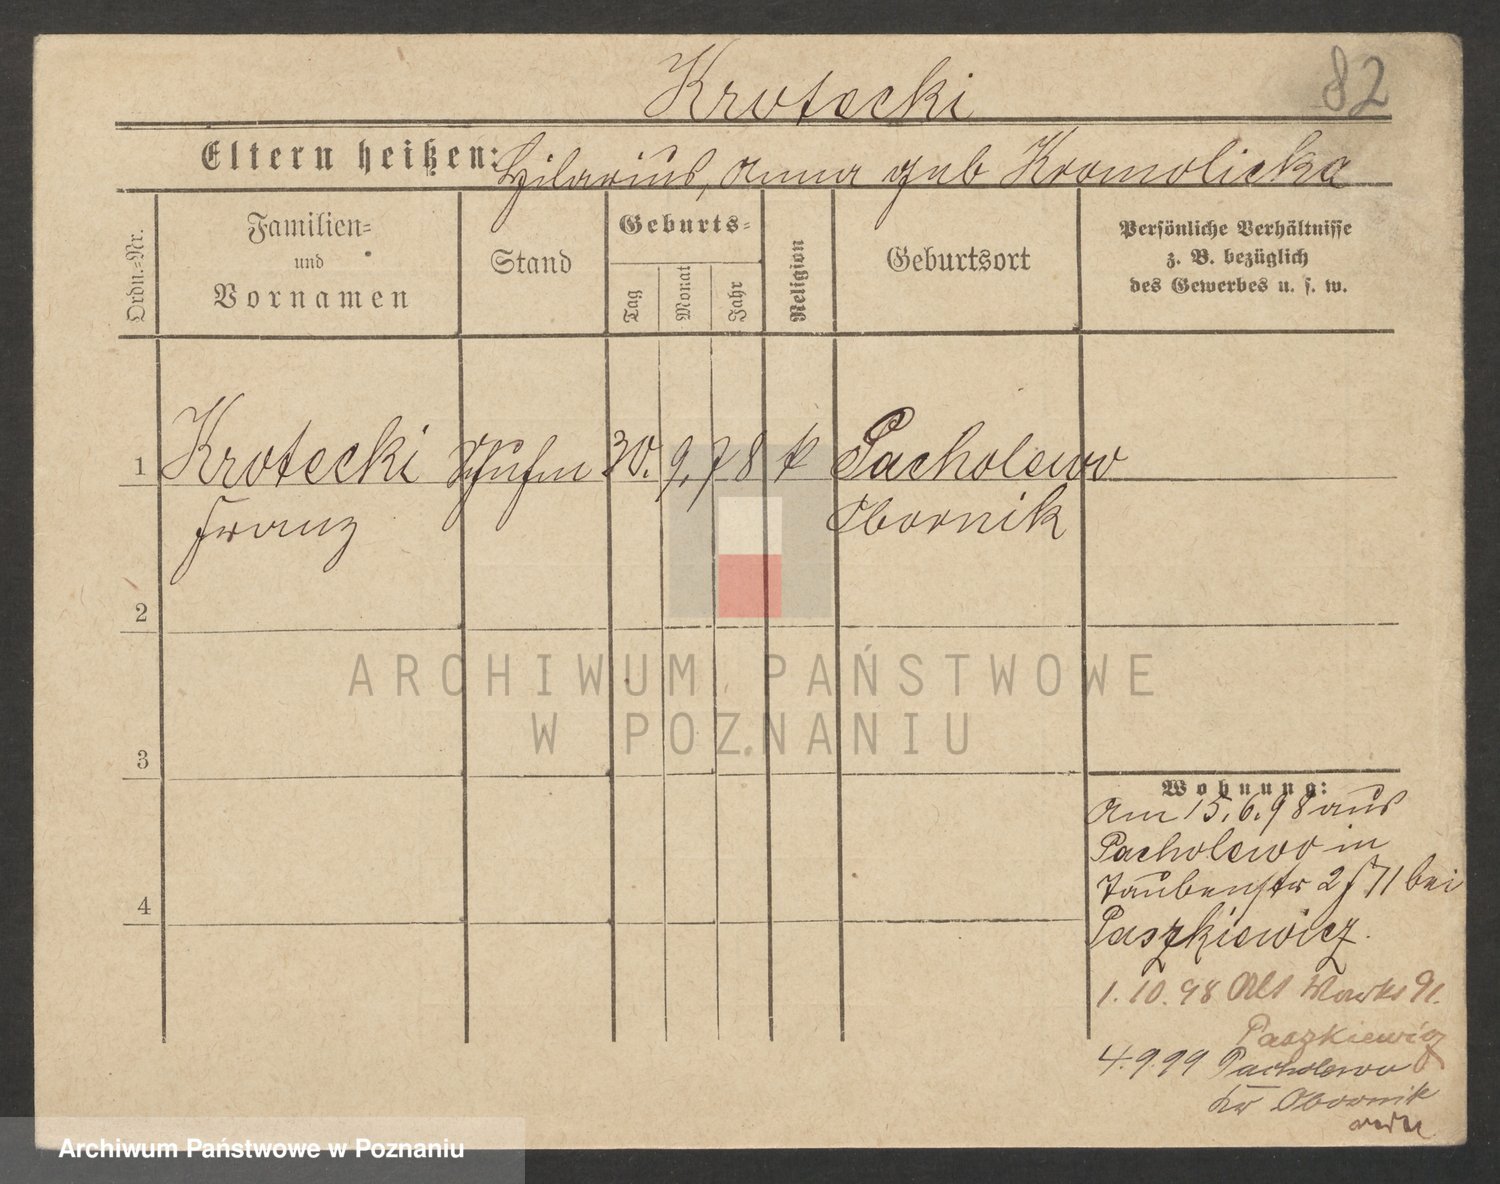 Krotecki
82
Eltern heißen: Hilarius, Anna geb Kromolicka
Ordn.-Nr.
Familien-
und
Vornamen
Stand
Geburts-
Tag
Monat
Jahr
Religion
Geburtsort
Persönliche Verhältnisse
z. B. bezüglich
des Gewerbes u. s. w.
1 Krotecki 30. 9. 78 k Pacholewo
Franz Obornik
2
3
4
Wohnung:
Am 15.6.98 aus
Pacholewo in
Taubenstr 2 bei
Paszkiewicz.
1.10.98 Alt 
Paszkiewicz
4.9.99 Pacholewo
Kr Obornik
ARCHIWUM PAŃSTWOWE
W POZNANIU
Archiwum Państwowe w Poznaniu